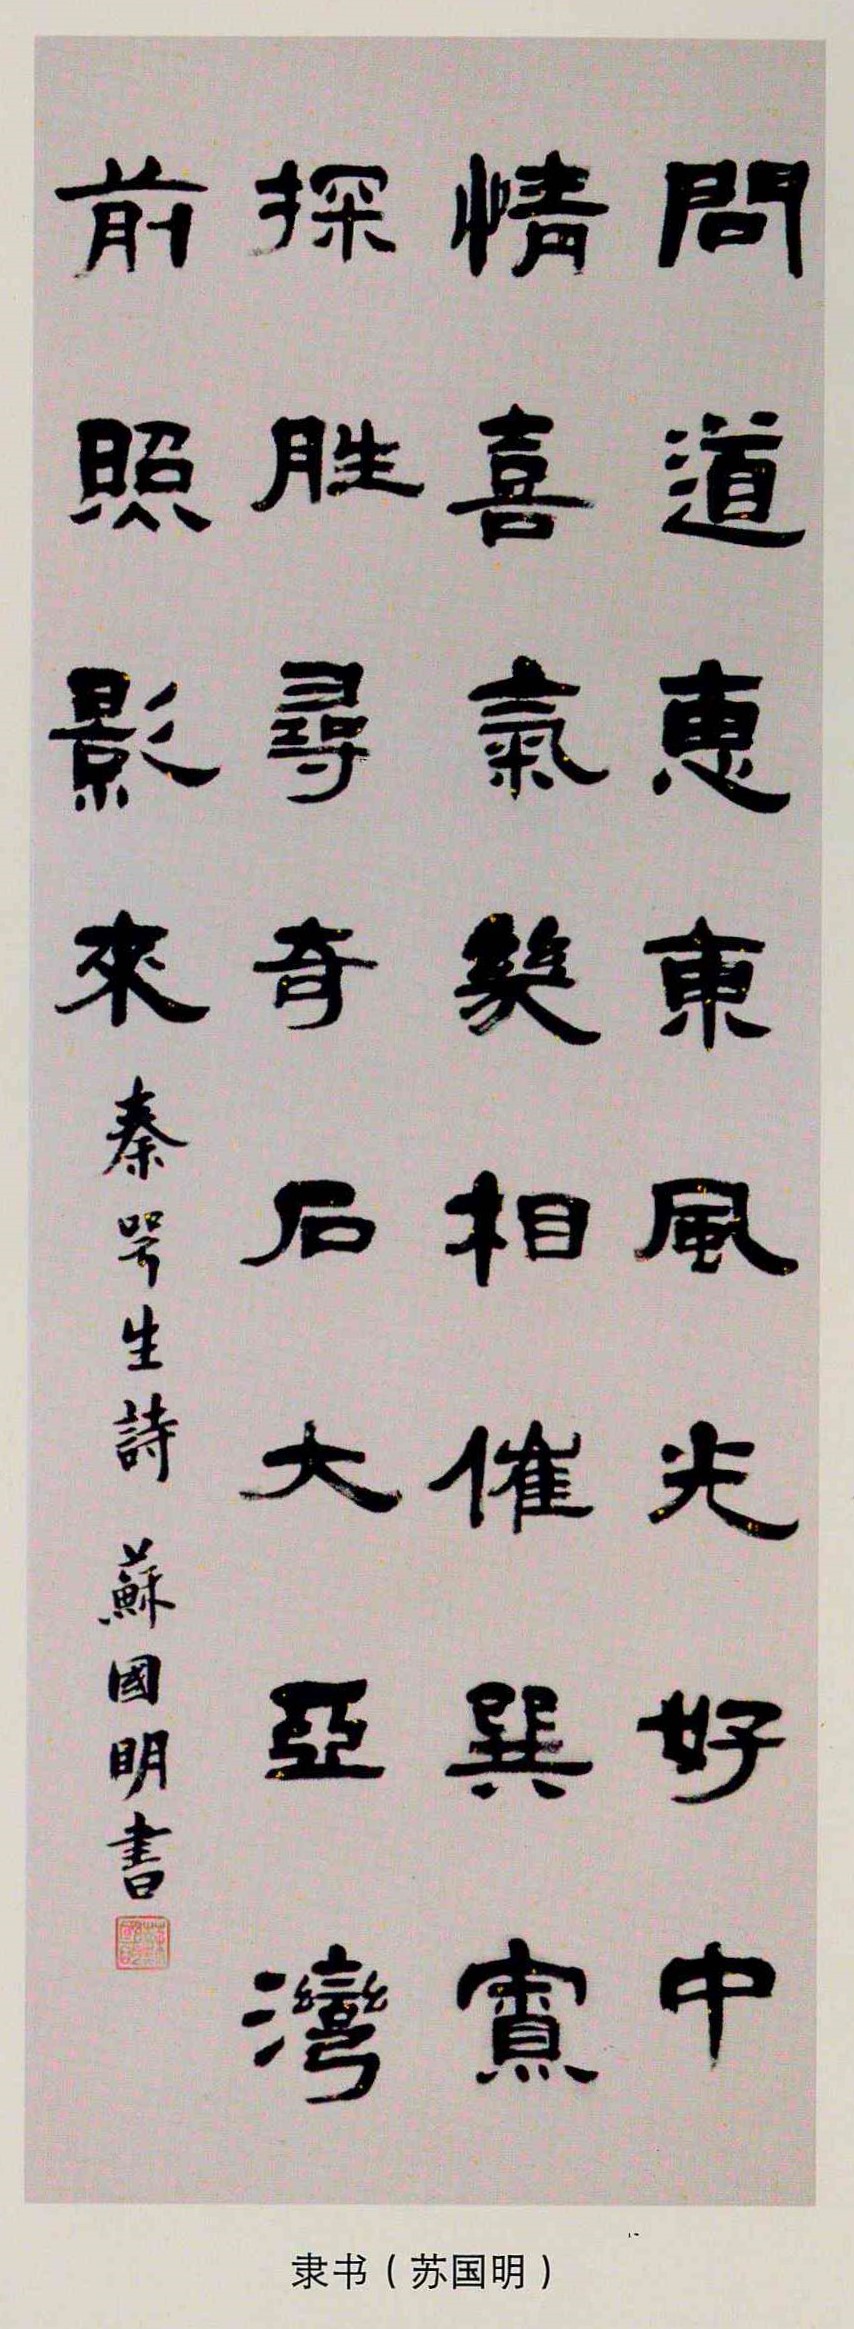 問道惠東風光好中
情喜氣裝相催巽寮
探胜尋奇石大亞灣
前照影來
秦咢生詩 蘇國明書
隶书（苏国明）